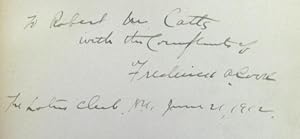 To Robert M. Catts
with the Compliments of
Frederick A Cook
The Lotus Club, N.Y. June 21, 1912.